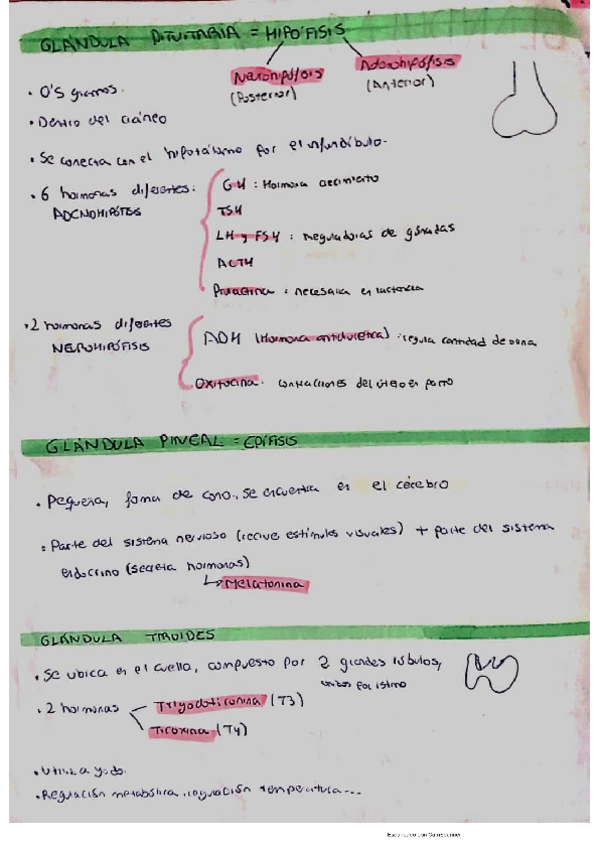 GLÁNDULA PITUITARIA = HIPÓFISIS
Neurohipófisis
(Posterior)
Adenohipófisis
(Anterior)
• 0'5 gramos.
• Dentro del cráneo
• Se conecta con el hipotálamo por el infundíbulo.
• 6 hormonas diferentes:
ADENOHIPÓFISIS
GH : Hormona crecimiento
TSH
LH y FSH : Reguladoras de gónadas
ACTH
Prolactina : necesaria en lactancia
• 2 hormonas diferentes
NEUROHIPÓFISIS
ADH (Hormona antidiurética) : regula cantidad de orina
Oxitocina. contracciones del útero en parto
GLÁNDULA PINEAL = EPÍFISIS
• Pequeña, forma de cono, se encuentra en el cerebro
• Parte del sistema nervioso (recive estímulos visuales) + parte del sistema
endocrino (secreta hormonas)
↳ Melatonina
GLÁNDULA TIROIDES
• Se ubica en el cuello, compuesto por 2 grandes lóbulos,
unidos por istmo
• 2 hormonas
Triyodotironina (T3)
Tiroxina (T4)
• Utiliza yodo.
• Regulación metabólica, regulación temperatura...
Escaneado con CamScanner